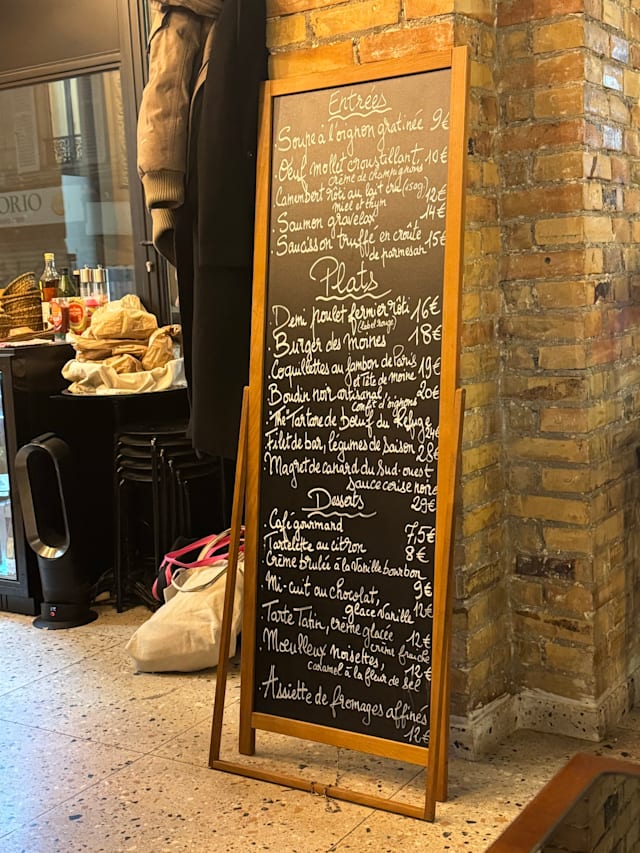 ORIO
Entrées
. Soupe à l'oignon gratinée 9€
. Oeuf mollet croustillant, 10€
crème de champignons
Camembert rôti au lait cru (150g) 12€
miel et thym
. Saumon gravelax 14€
. Saucisson truffé en croûte 15€
de parmesan
Plats
. Demi poulet fermier rôti 16€
(label rouge)
. Burger des Moines 18€
Coquillettes au jambon de Paris 19€
et Tête de Moine
. Boudin noir artisanal 20€
confit d'oignons
"The" Tartare de Boeuf du Refuge 24€
. Filet de bar, légumes de saison 28€
. Magret de canard du Sud-ouest
sauce cerise noire
29€
Desserts
. Café gourmand 7,5€
. Tartelette au citron 8€
. Crème brulée à la Vanille bourbon
9€
. Mi-cuit au chocolat,
glace Vanille 12€
. Tarte Tatin, crème glacée 12€
crème fraîche
. Moelleux noisettes, 12€
caramel à la fleur de sel
. Assiette de fromages affinés
12€